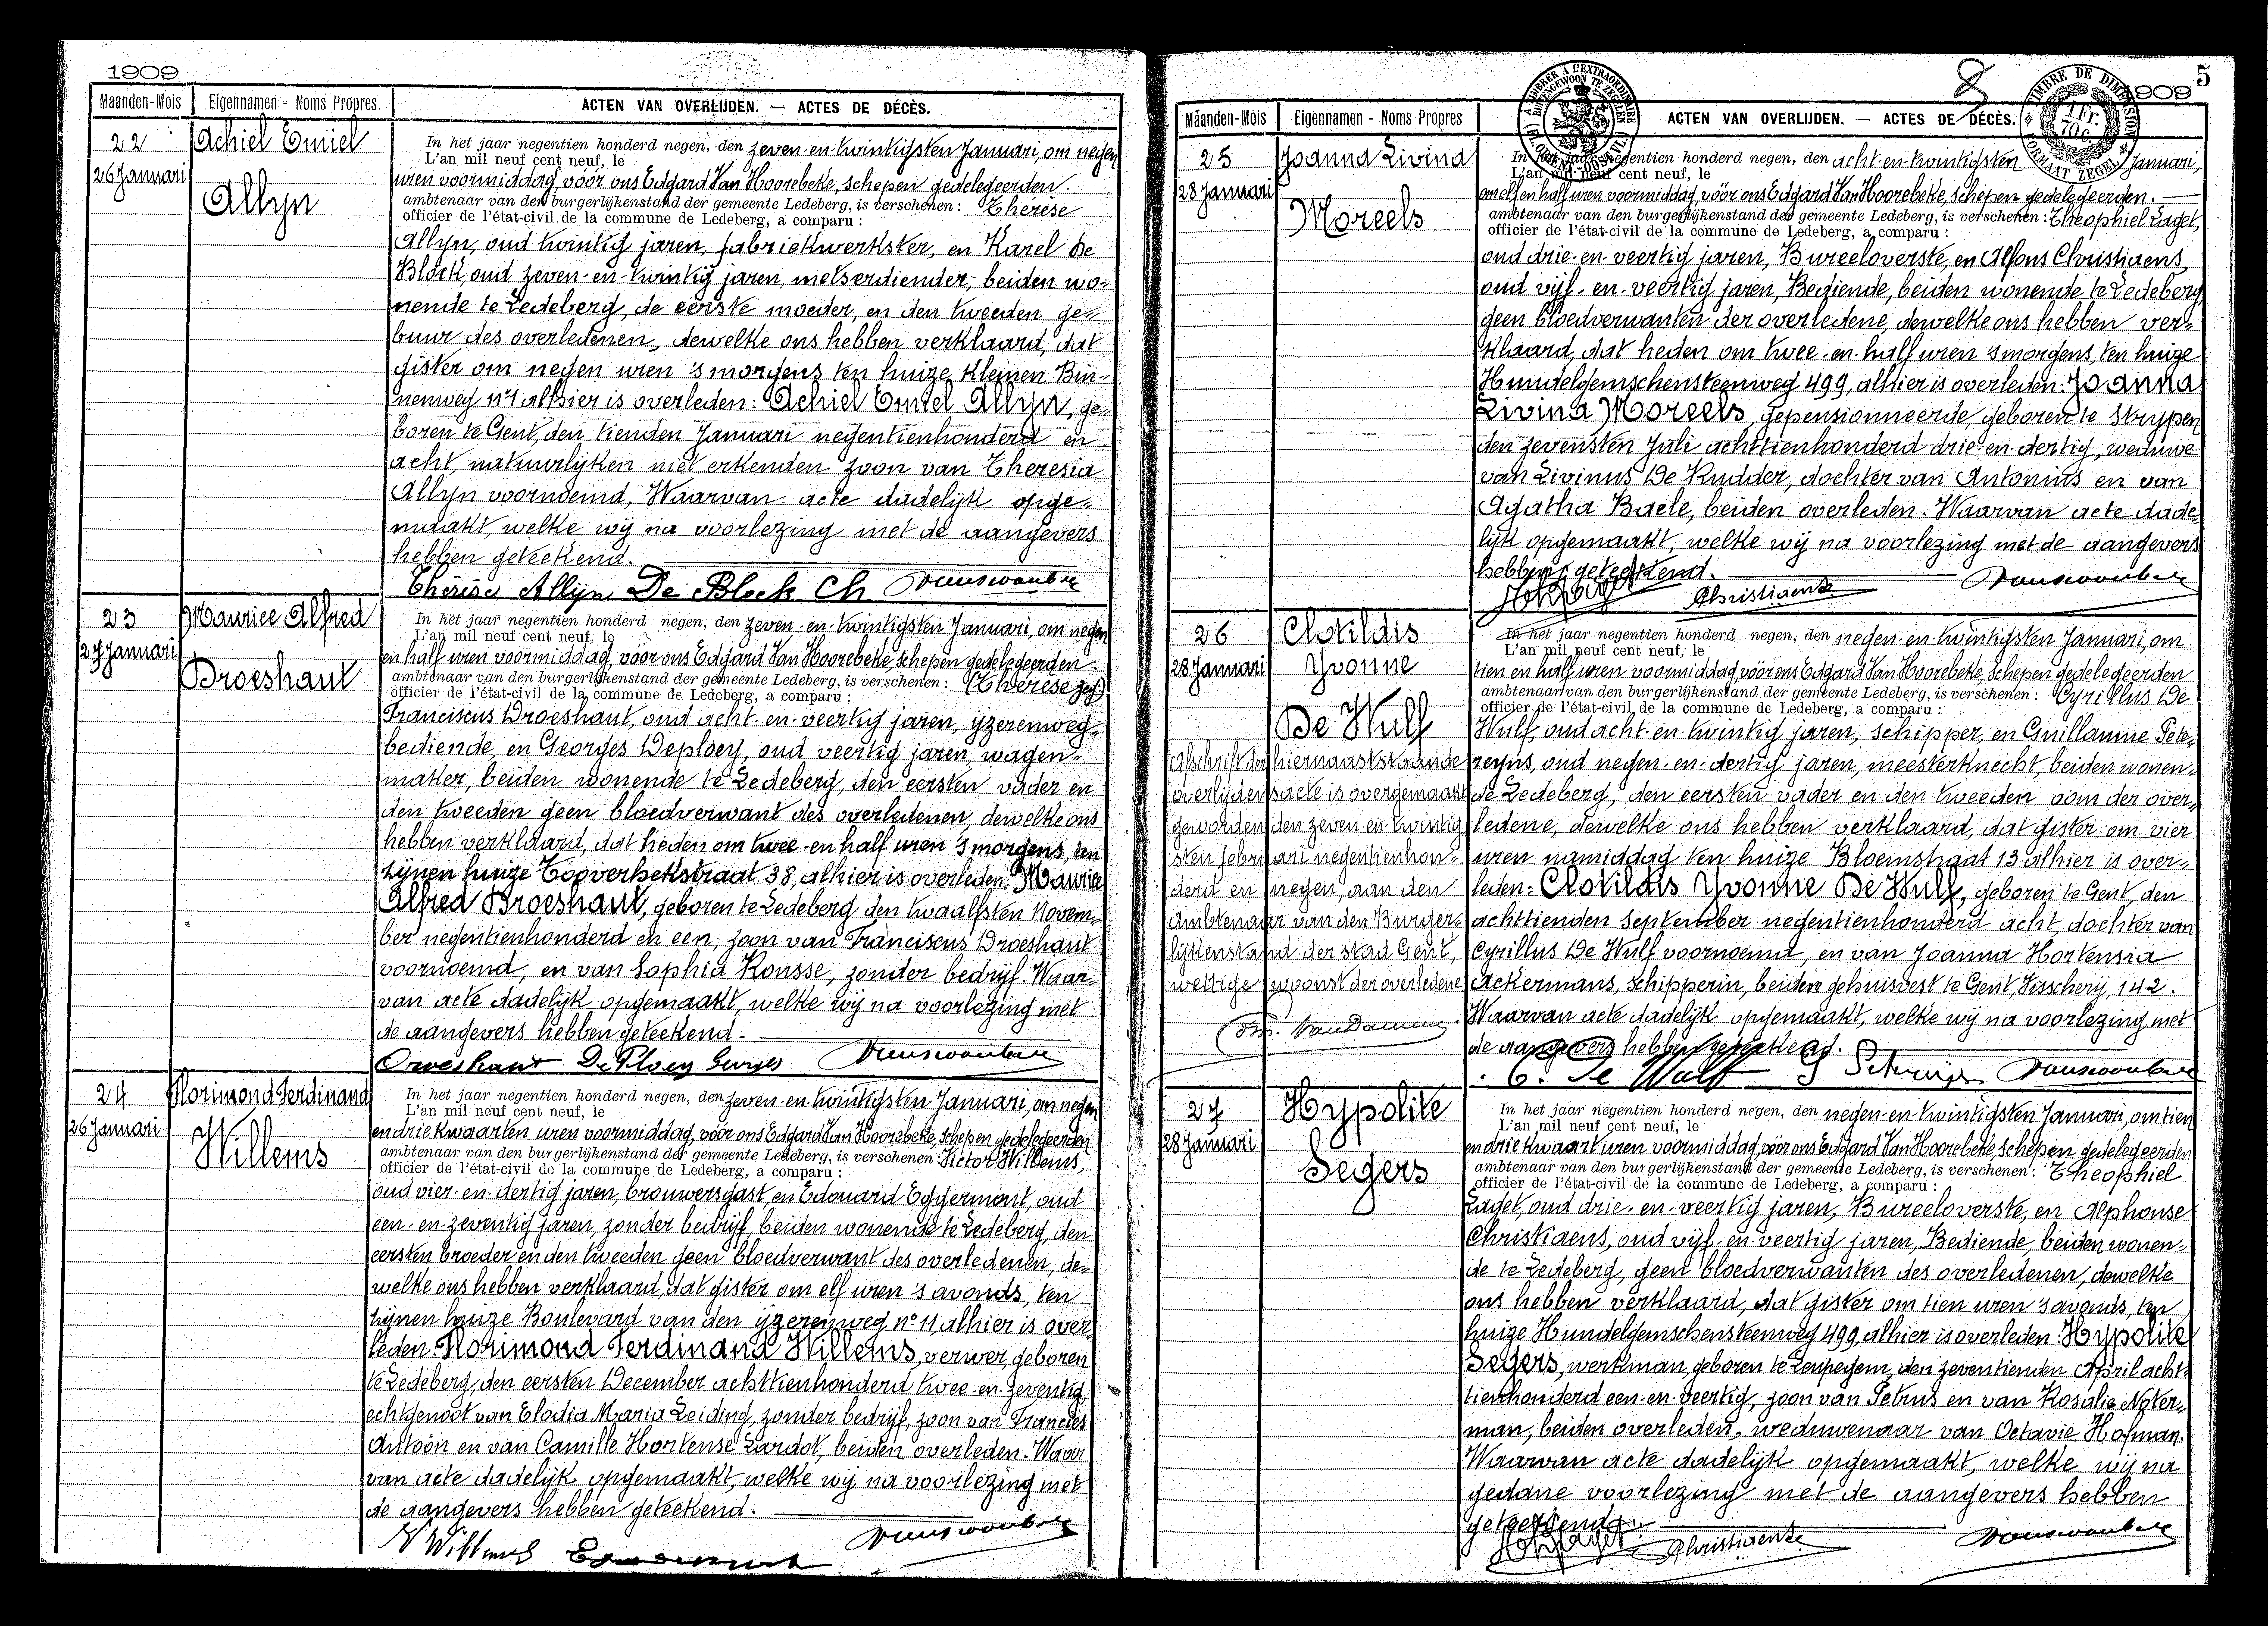 1909
Maanden-Mois Eigennamen - Noms Propres ACTEN VAN OVERLIJDEN. — ACTES DE DÉCÈS.
22
26 Januari
Achiel Emiel
Allyn
In het jaar negentien honderd negen, den zeven-en-twintigsten Januari, om negen
L'an mil neuf cent neuf, le
uren voormiddag vóór ons Edgard Van Hoorebeke, schepen gedelegeerden
ambtenaar van den burgerlijkenstand der gemeente Ledeberg, is verschenen: Thérèse
officier de l'état-civil de la commune de Ledeberg, a comparu :
Allyn, oud twintig jaren, fabriekwerkster, en Karel De
Block, oud zeven-en-twintig jaren, metserdiender, beiden wo-
nende te Ledeberg, de eerste moeder, en den tweeden ge-
buur des overledenen, dewelke ons hebben verklaard, dat
gister om negen uren 's morgens ten huize Kleinen Bin-
nenweg n°1 alhier is overleden: Achiel Emiel Allyn, ge-
boren te Gent, den tienden Januari negentienhonderd en
acht, natuurlijken niet erkenden zoon van Theresia
Allyn voornoemd, Waarvan acte dadelijk opge-
maakt, welke wij na voorlezing met de aangevers
hebben geteekend.
Thérèse Allijn De Block Ch
23
27 Januari
Maurice Alfred
Droeshaut
In het jaar negentien honderd negen, den zeven-en-twintigsten Januari, om negen
L'an mil neuf cent neuf, le
en half uren voormiddag, vóór ons Edgard Van Hoorebeke, schepen gedelegeerden
ambtenaar van den burgerlijkenstand der gemeente Ledeberg, is verschenen: (Thérèse zegt)
officier de l'état-civil de la commune de Ledeberg, a comparu :
Franciscus Droeshaut, oud acht-en-veertig jaren, ijzerenweg-
bediende, en Georges Deploey, oud veertig jaren, wagen-
maker, beiden wonende te Ledeberg, den eersten vader en
den tweeden geen bloedverwant des overledenen, dewelke ons
hebben verklaard, dat heden om twee-en half uren 's morgens, ten
zijnen huize Tooverhekstraat 38, alhier is overleden: Maurice
Alfred Droeshaut, geboren te Ledeberg den twaalfsten Novem-
ber negentienhonderd en een, zoon van Franciscus Droeshaut
voornoemd, en van Sophia Rousse, zonder bedrijf. Waar-
van acte dadelijk opgemaakt, welke wij na voorlezing met
de aangevers hebben geteekend.
Droeshaut De Ploey Georges
24
26 Januari
Florimond Ferdinand
Willems
In het jaar negentien honderd negen, den zeven-en-twintigsten Januari, om negen
L'an mil neuf cent neuf, le
en drie kwaarten uren voormiddag, vóór ons Edgard Van Hoorebeke, schepen gedelegeerden
ambtenaar van den burgerlijkenstand der gemeente Ledeberg, is verschenen: Victor Willems,
officier de l'état-civil de la commune de Ledeberg, a comparu :
oud vier-en-dertig jaren, brouwersgast, en Edouard Eggermont, oud
een-en-zeventig jaren, zonder bedrijf, beiden wonende te Ledeberg, den
eersten broeder en den tweeden geen bloedverwant des overledenen, de-
welke ons hebben verklaard, dat gister om elf uren 's avonds, ten
zijnen huize Boulevard van den ijzerenweg n° 11, alhier is over-
leden: Florimond Ferdinand Willems, verwer, geboren
te Ledeberg, den eersten December achttienhonderd twee-en-zeventig,
echtgenoot van Elodia Maria Leiding, zonder bedrijf, zoon van Francies
Antoon en van Camille Hortense Lardot, beiden overleden. Waar
van acte dadelijk opgemaakt, welke wij na voorlezing met
de aangevers hebben geteekend.
V Willems
8
5
1909
TIMBRE DE DIMENSION
1 Fr.
70 c
FORMAAT ZEGEL
Maanden-Mois Eigennamen - Noms Propres ACTEN VAN OVERLIJDEN. — ACTES DE DÉCÈS.
25
28 Januari
Joanna Livina
Moreels
In het jaar negentien honderd negen, den acht-en-twintigsten Januari,
L'an mil neuf cent neuf, le
om elf en half uren voormiddag vóór ons Edgard Van Hoorebeke, schepen gedelegeerden.
ambtenaar van den burgerlijkenstand der gemeente Ledeberg, is verschenen: Theophiel Laget,
officier de l'état-civil de la commune de Ledeberg, a comparu :
oud drie-en-veertig jaren, Bureeloverste, en Alfons Christiaens,
oud vijf-en-veertig jaren, Bediende, beiden wonende te Ledeberg
geen bloedverwanten der overledene, dewelke ons hebben ver-
klaard, dat heden om twee-en-half uren 's morgens, ten huize
Hundelgemschensteenweg 499, alhier is overleden: Joanna
Livina Moreels, gepensionneerde, geboren te Strypen
den zevensten Juli achttienhonderd drie-en-dertig, weduwe
van Livinus De Rudder, dochter van Antonius en van
Agatha Baele, beiden overleden. Waarvan acte dade-
lijk opgemaakt, welke wij na voorlezing met de aangevers
hebben geteekend.
Christiaens
26
28 Januari
Clotildis
Yvonne
De Wulf
Afschrift der hiernaaststaande
overlijdensacte is overgemaakt
geworden den zeven-en-twintig
sten februari negentienhon-
derd en negen, aan den
Ambtenaar van den Burger-
lijkenstand der stad Gent,
wettige woonst der overledene
In het jaar negentien honderd negen, den negen-en-twintigsten Januari, om
L'an mil neuf cent neuf, le
tien en half uren voormiddag vóór ons Edgard Van Hoorebeke, schepen gedelegeerden
ambtenaar van den burgerlijkenstand der gemeente Ledeberg, is verschenen: Cyrillus De
officier de l'état-civil de la commune de Ledeberg, a comparu :
Wulf, oud acht-en-twintig jaren, schipper, en Guillaume Pete-
reyns, oud negen-en-dertig jaren, meesterknecht, beiden wonen-
de Ledeberg, den eersten vader en den tweeden oom der over-
ledene, dewelke ons hebben verklaard, dat gister om vier
uren namiddag ten huize Bloemstraat 13 alhier is over-
leden: Clotildis Yvonne De Wulf, geboren te Gent, den
achttienden September negentienhonderd acht, dochter van
Cyrillus De Wulf voornoemd, en van Joanna Hortensia
Ackermans, schipperin, beiden gehuisvest te Gent, Visscherij, 142.
Waarvan acte dadelijk opgemaakt, welke wij na voorlezing, met
de aangevers hebben geteekend.
C. De Wulf
27
28 Januari
Hypolite
Segers
In het jaar negentien honderd negen, den negen-en-twintigsten Januari, om tien
L'an mil neuf cent neuf, le
en drie kwaart uren voormiddag, vóór ons Edgard Van Hoorebeke, schepen gedelegeerden
ambtenaar van den burgerlijkenstand der gemeente Ledeberg, is verschenen: Theophiel
officier de l'état-civil de la commune de Ledeberg, a comparu :
Laget, oud drie-en-veertig jaren, Bureeloverste, en Alphonse
Christiaens, oud vijf-en-veertig jaren, Bediende, beiden wonen-
de te Ledeberg, geen bloedverwanten des overledenen, dewelke
ons hebben verklaard, dat gister om tien uren 's avonds, ten
huize Hundelgemschensteenweg 499, alhier is overleden: Hypolite
Segers, werkman, geboren te Leupegem, den zeventienden April acht-
tienhonderd een-en-veertig, zoon van Petrus en van Rosalie Noter-
man, beiden overleden, weduwenaar van Octavie Hofman.
Waarvan acte dadelijk opgemaakt, welke wij na
gedane voorlezing met de aangevers hebben
geteekend.
Christiaens